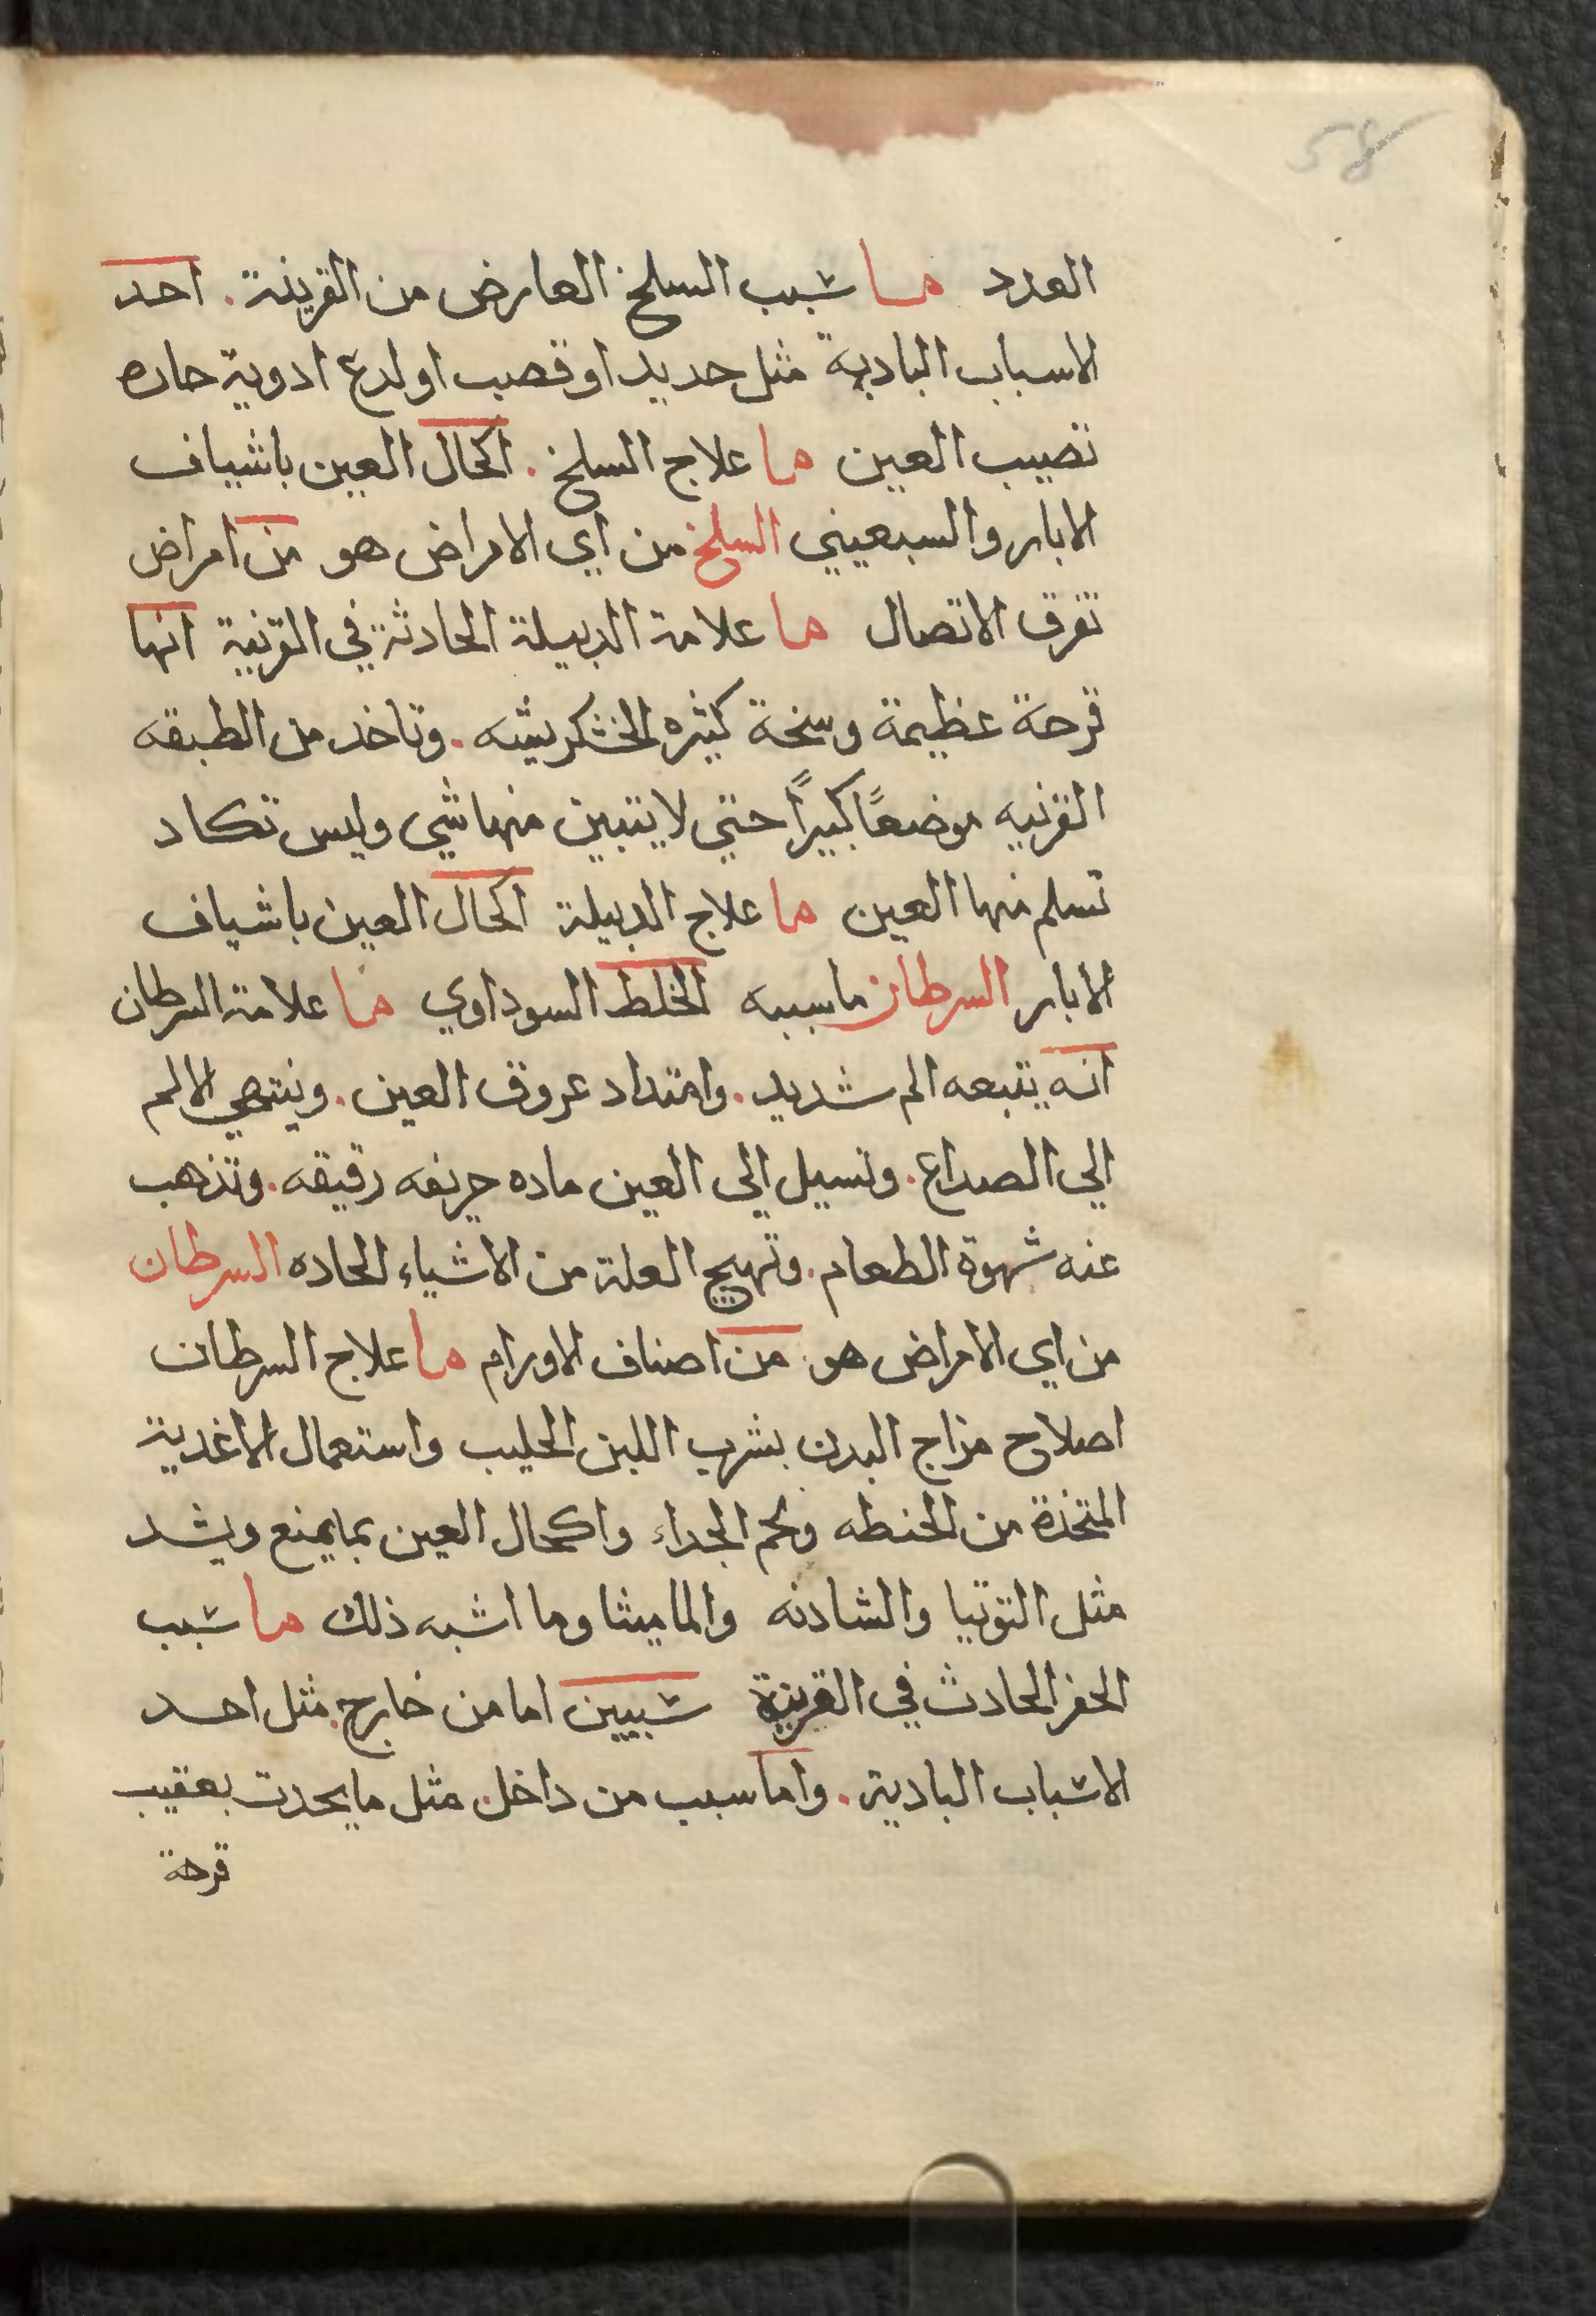 58
العدد ما شبب السلخ العارض من القرينة . احد
الاسباب البادية مثل حديد او قصب او لدع ادوية حاره
تصيب العين ما علاج السلخ . اكحال العين باشياف
الابار والسبعيني السلخ من اي الامراض هو من امراض
تفرق الاتصال ما علامة الدبيلة الحادثة في القرنية انها
قرحة عظيمة وسخة كثيره الخشكريشه . وتاخد من الطبقه
القرنيه موضعًا كبيرًا حتي لا يتبين منها شي وليس تكاد
تسلم منها العين ما علاج الدبيلة اكحال العين باشياف
الابار السرطان ما سببه الخلط السوداوي ما علامة السرطان
انه يتبعه الم شديد . وامتداد عروق العين . وينتهي الالم
الي الصداع . وتسيل الي العين ماده حريفه رقيقه . وتذهب
عنه شهوة الطعام . وتهيج العلة من الاشياء الحاده السرطان
من اي الامراض هو من اصناف الاورام ما علاج السرطان
اصلاح مزاج البدن بشرب اللبن الحليب واستعمال الاغدية
المتخذة من الحنطه ولحم الجداء واكحال العين بما يمنع ويشد
مثل التوتيا والشادنه والماميثا وما اشبه ذلك ما شبب
الحفر الحادث في القرنية شببين اما من خارج . مثل احد
الاشباب البادية . واما سبب من داخل . مثل ما يحدت بعقيب
قرحة